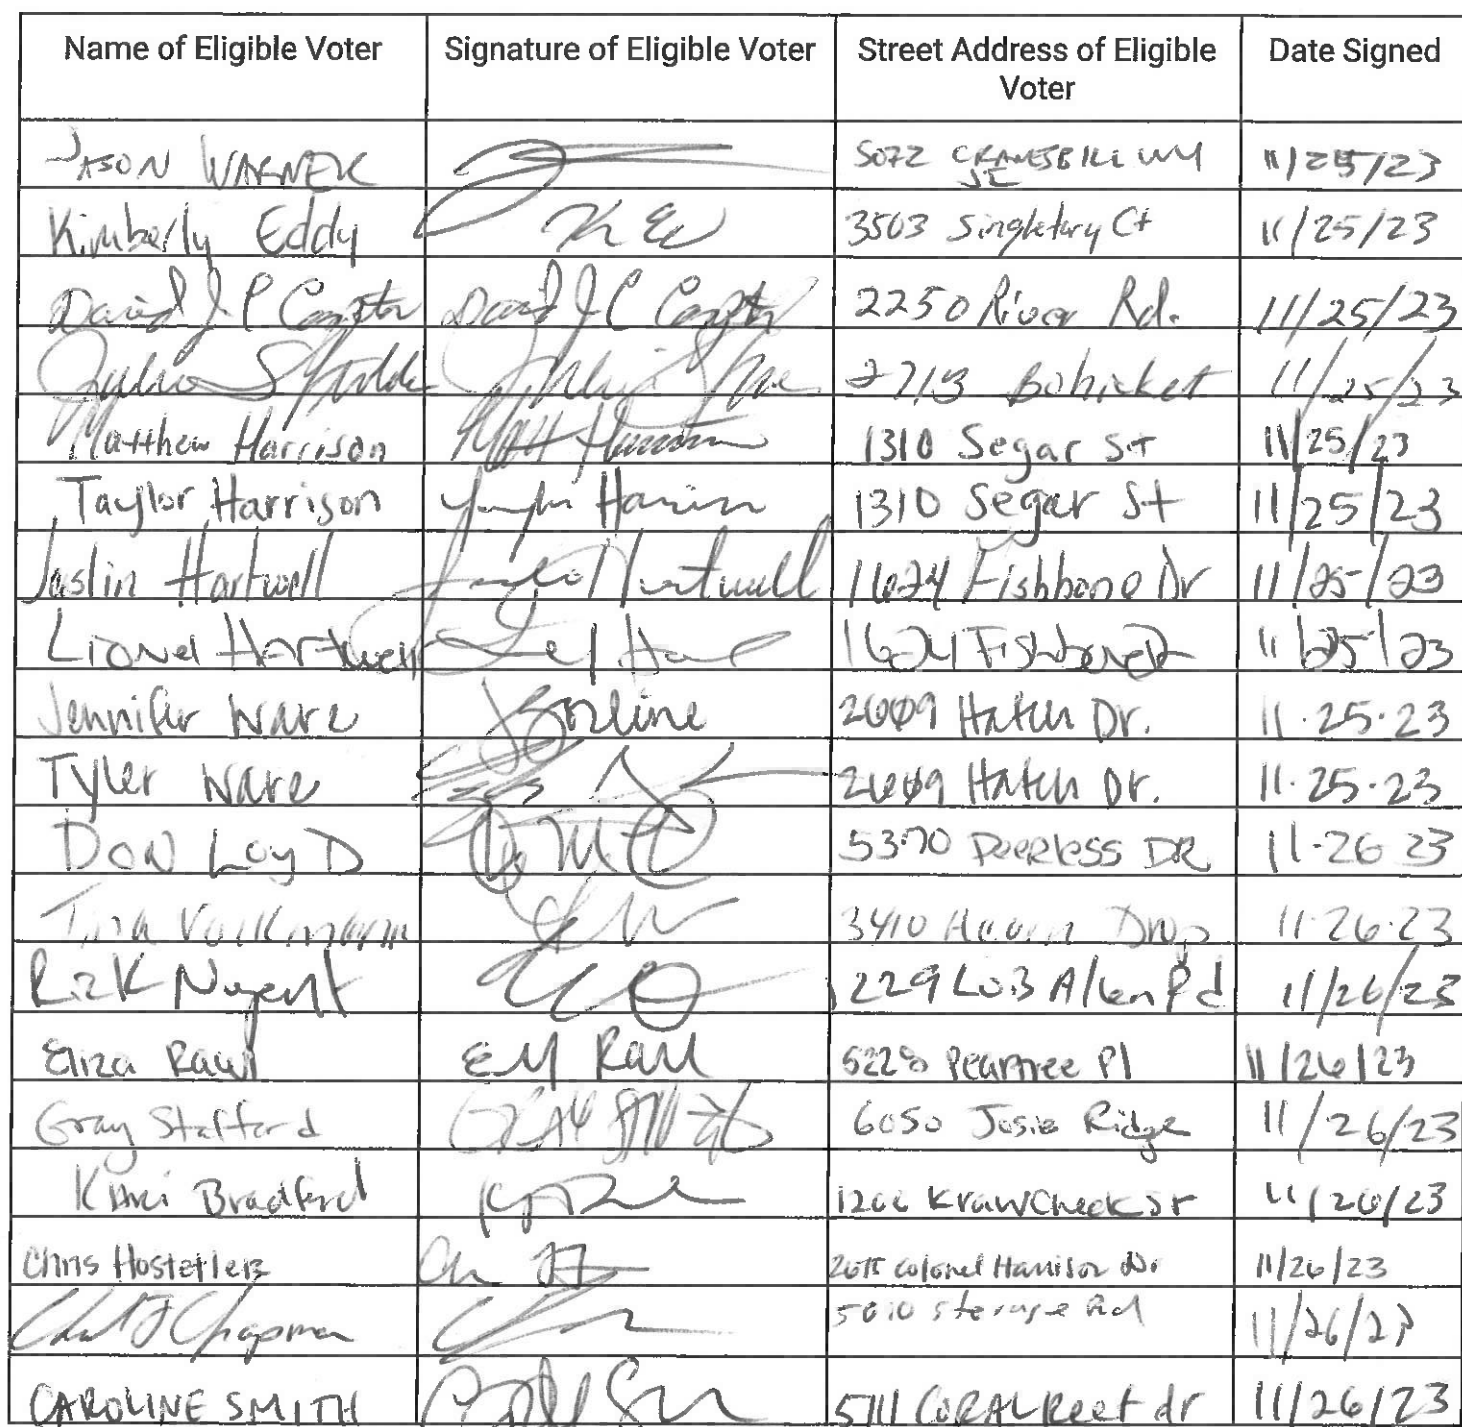 Name of Eligible Voter Signature of Eligible Voter Street Address of Eligible Voter Date Signed
JASON WARNER 5072 CRANESBILL WY SE 11/25/23
Kimberly Eddy K E 3503 Singletary Ct 11/25/23
David J C David J C 2250 River Rd. 11/25/23
Julia 2713 Bohicket 11/25/23
Matthew Harrison Matt Harrison 1310 Segar St 11/25/23
Taylor Harrison Taylor Harrison 1310 Segar St 11/25/23
Hartwell Hartwell 1624 Fishbone Dr 11/25/23
Lionel Hartwell 1624 Fishbone Dr 11/25/23
Jennifer Ware 2609 Hatch Dr. 11.25.23
Tyler Ware 2609 Hatch Dr. 11.25.23
DON LoyD 5370 Peerless DR 11-26 23
Tina Volkmann 3410 Acorn Drop 11.26.23
Nugent 229 Allen Rd 11/26/23
Eliza Rawl EM Rawl 5228 Peartree Pl 11/26/23
Gray Stafford 6050 Josie Ridge 11/26/23
Bradford KrawCheck St 11/26/23
Chris Hostetler Colonel Harrison Dr 11/26/23
Chapman Rd 11/26/23
CAROLINE SMITH 5111 CORAL Reef dr 11/26/23